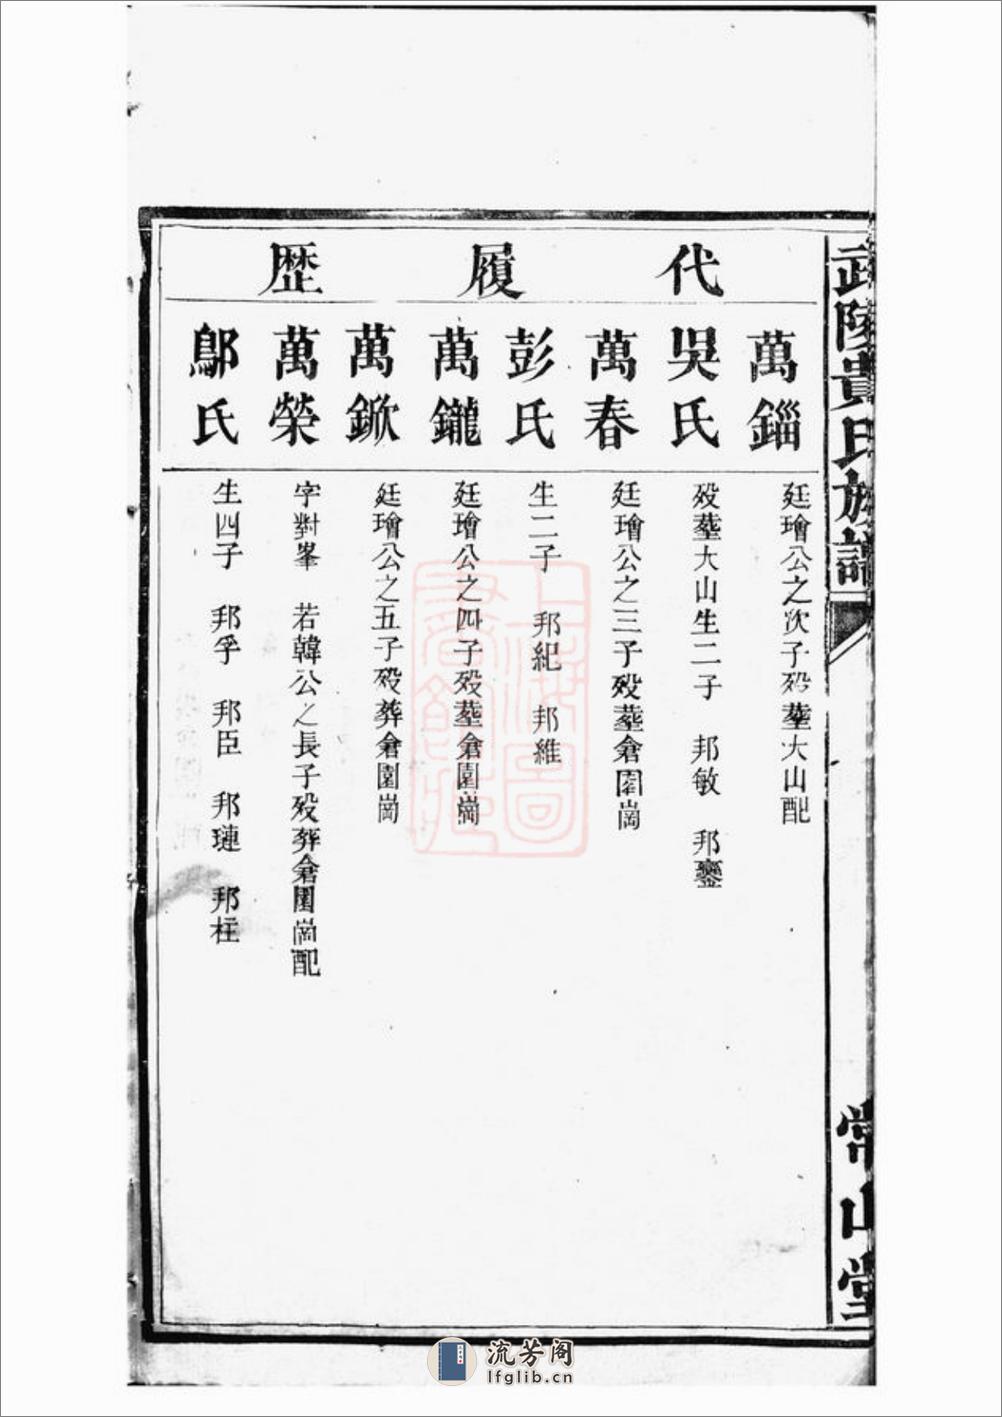 武陵貴氏族譜
常山堂
代履歴
萬鍿
廷璯公之次子殁塟大山配
吳氏
殁塟大山生二子 邦敏 邦鑾
萬春
廷璯公之三子殁塟倉園崗
彭氏
生二子 邦紀 邦維
萬鑨
廷璯公之四子殁塟倉園崗
萬鍁
廷璯公之五子殁葬倉園崗
萬榮
字對峯 若韓公之長子殁葬倉園崗配
鄔氏
生四子 邦孚 邦臣 邦璉 邦柱
上海圖書館藏
流芳阁
lfglib.cn